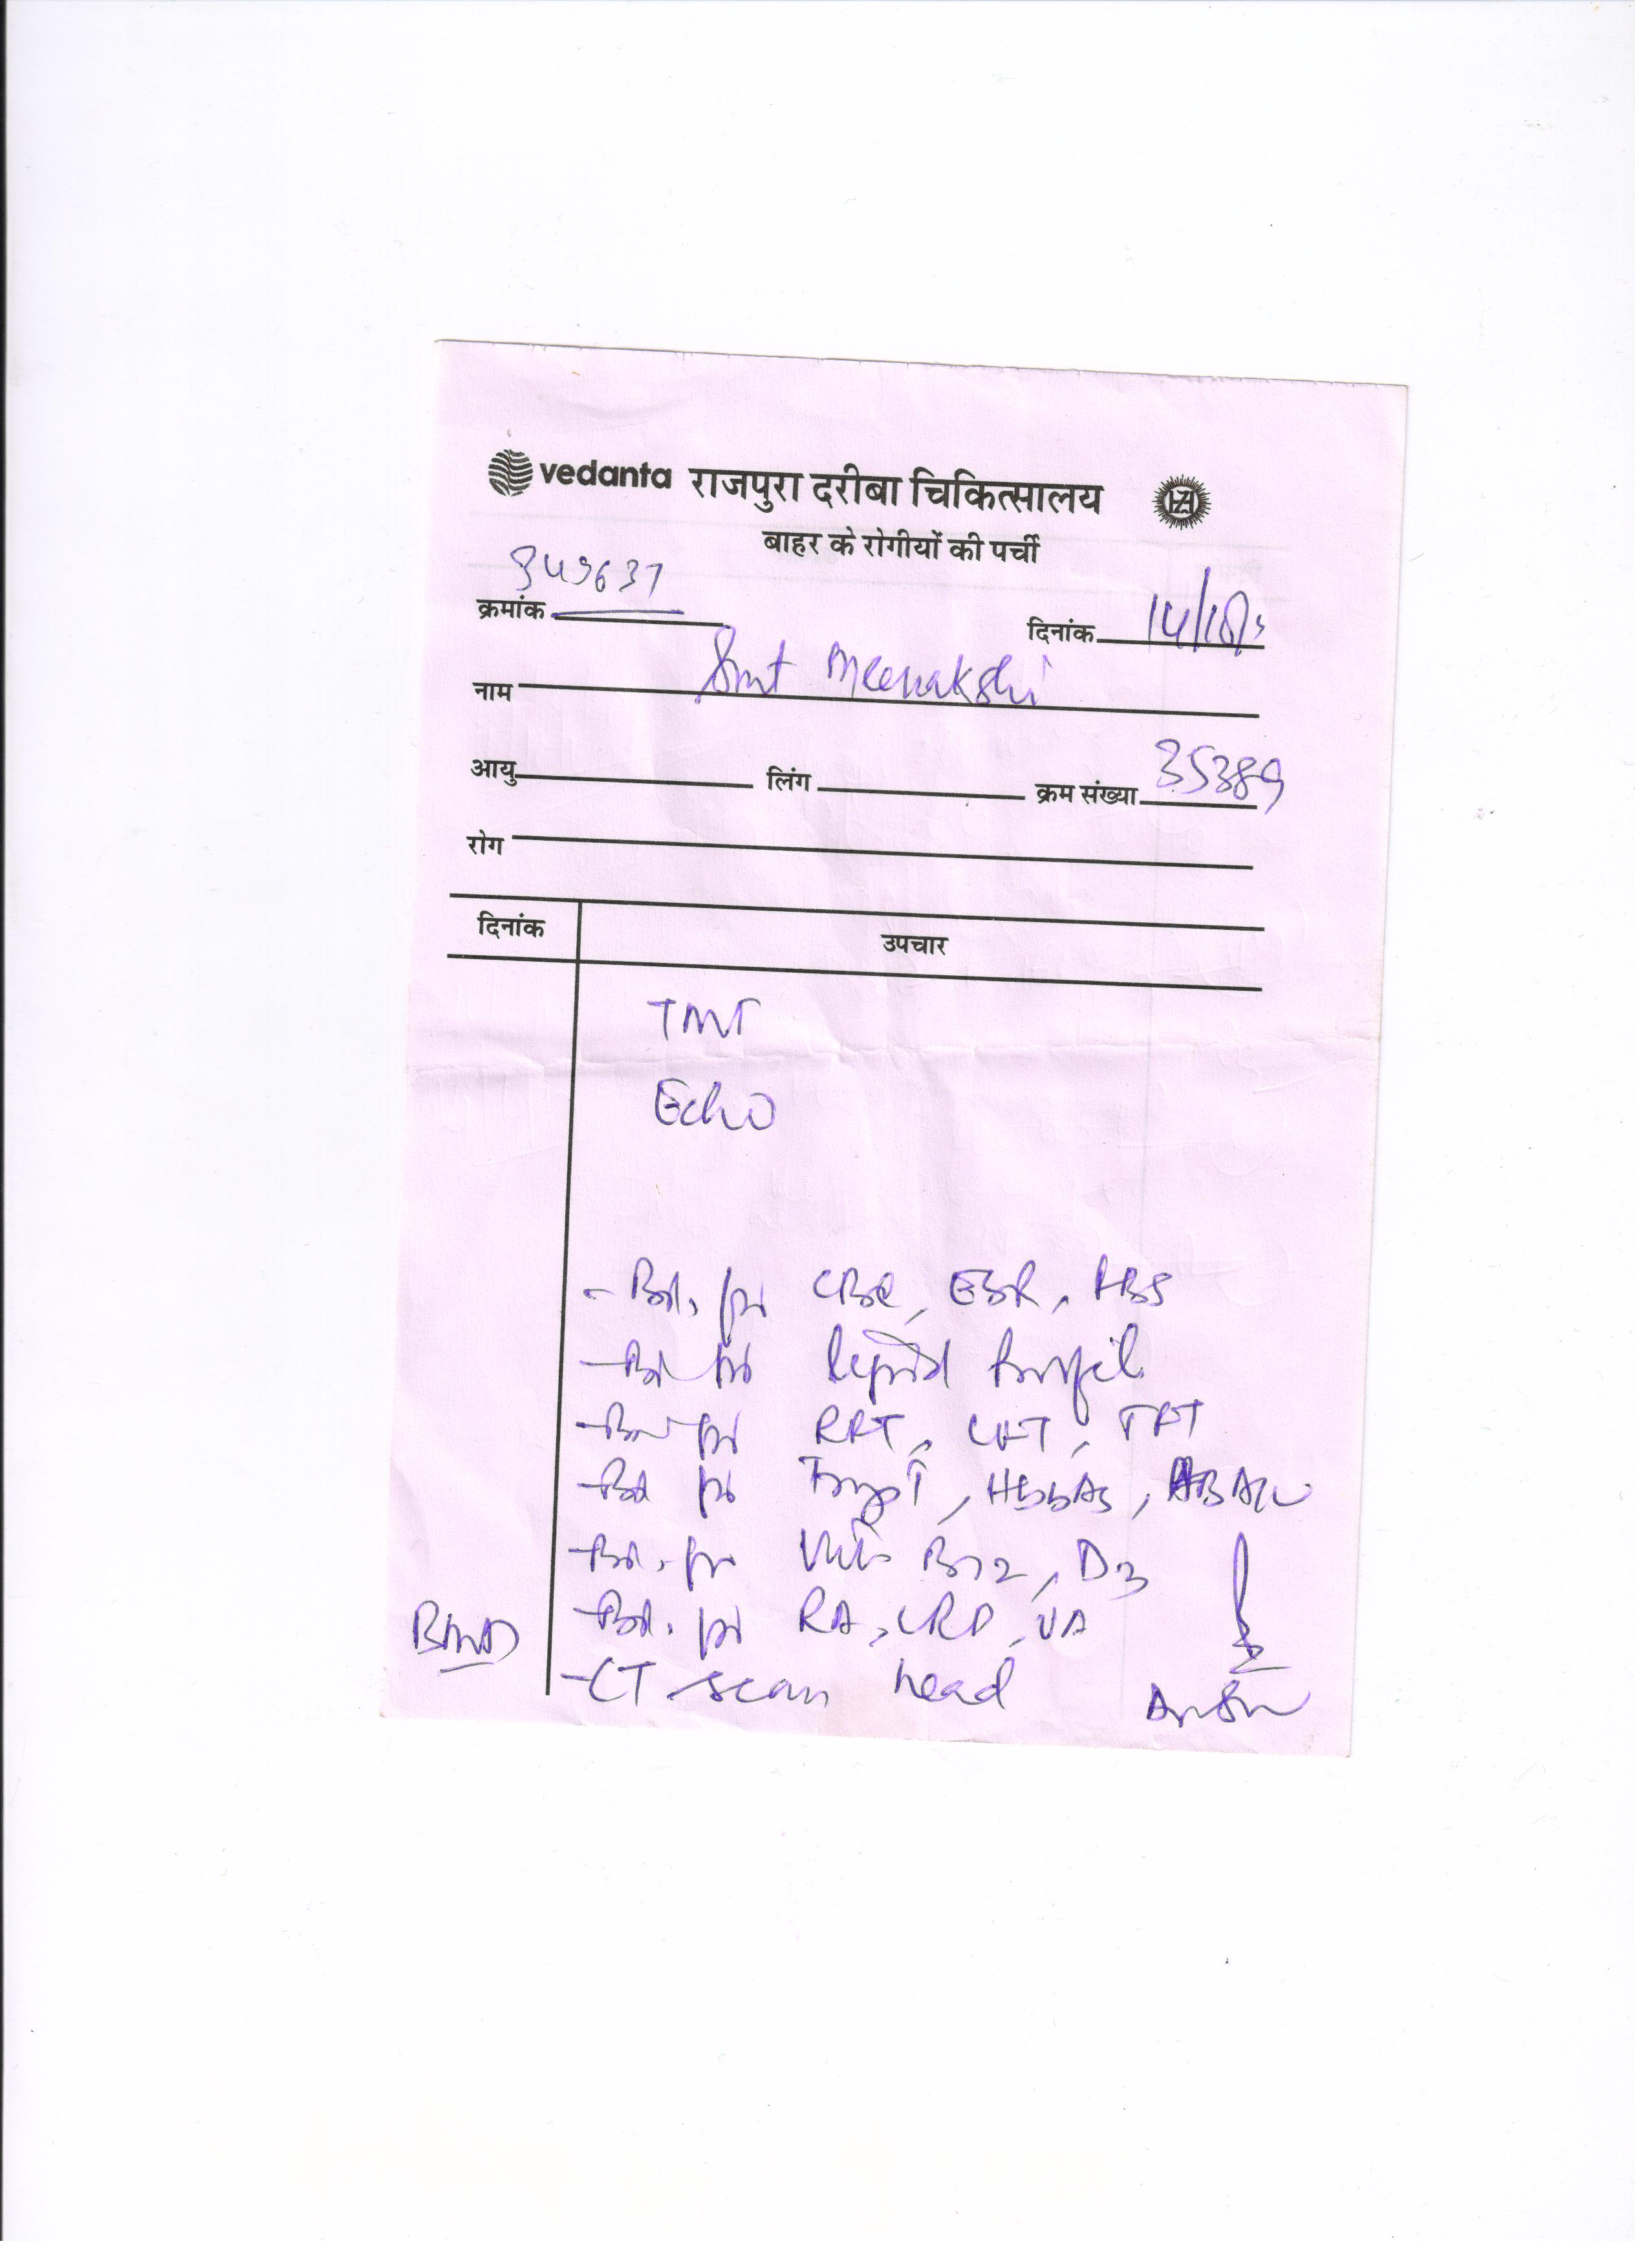 vedanta राजपुरा दरीबा चिकित्सालय HZL
बाहर के रोगीयों की पर्ची
क्रमांक 349637
दिनांक 14/10/
नाम Smt Meenakshi
आयु लिंग क्रम संख्या 35389
रोग
दिनांक उपचार
TMT
Echo
- Bl. for CBC, ESR, RBS
- Bl for lipid Profil
- Bl for RFT, LFT, TFT
- Bl for , HbsAg, HBA1c
- Bl. for Vit B12, D3
- Bl. for RA, CRP, UA
BMD
- CT scan head